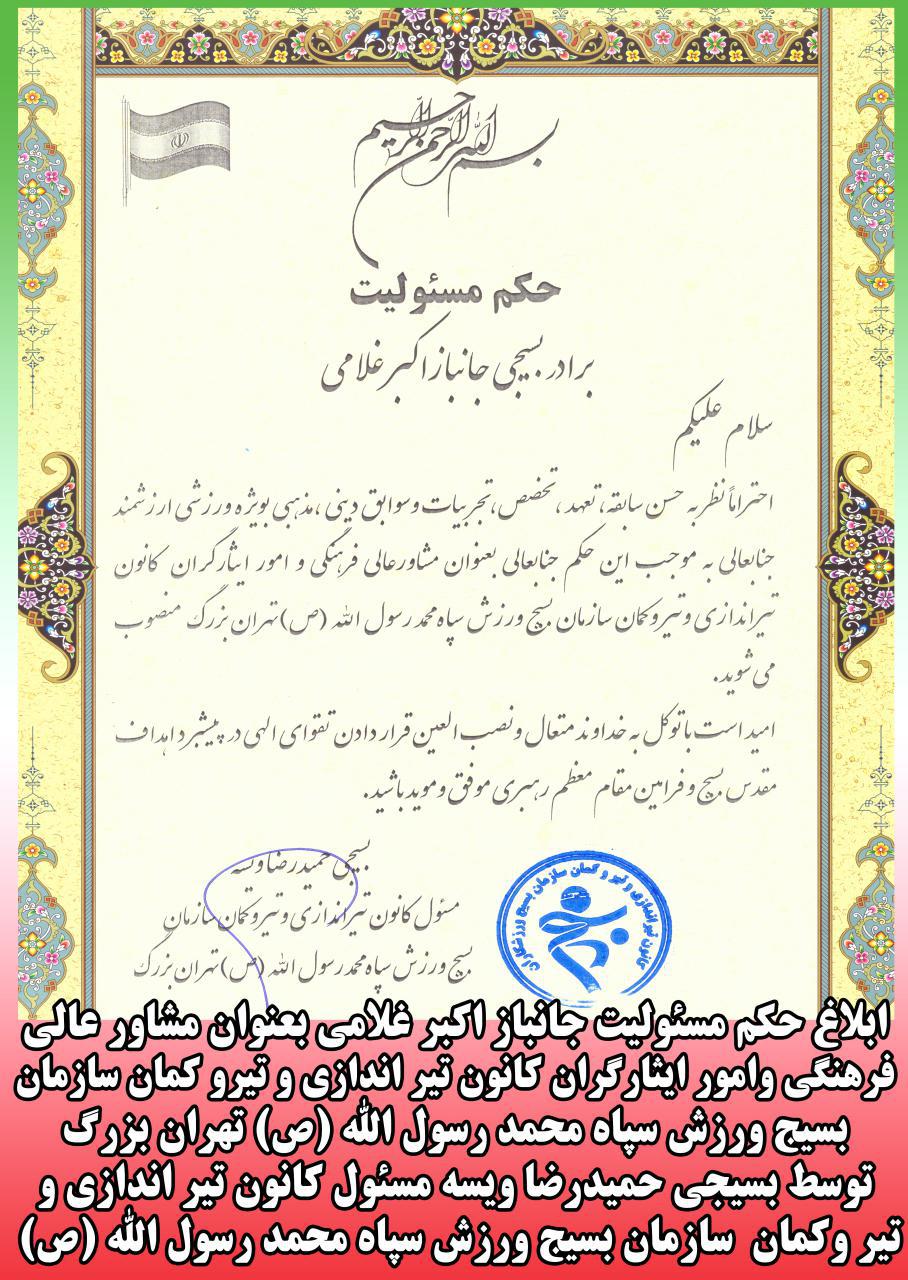 بسم الله الرحمن الرحیم
حکم مسئولیت
برادر بسیجی جانباز اکبر غلامی
سلام علیکم
احتراماً نظر به حسن سابقه، تعهد، تخصص، تجربیات و سوابق دینی، مذهبی بویژه ورزشی ارزشمند
جنابعالی به موجب این حکم جنابعالی بعنوان مشاورعالی فرهنگی و امور ایثارگران کانون
تیراندازی و تیروکمان سازمان بسیج ورزش سپاه محمد رسول الله (ص) تهران بزرگ منصوب
می شوید.
امید است با توکل به خداوند متعال و نصب العین قرار دادن تقوای الهی در پیشبرد اهداف
مقدس بسیج و فرامین مقام معظم رهبری موفق و موید باشید.
بسیجی حمیدرضا ویسه
مسئول کانون تیراندازی و تیروکمان سازمان
بسیج ورزش سپاه محمد رسول الله (ص) تهران بزرگ
کانون تیراندازی و تیر و کمان سازمان بسیج ورزشکاران
ابلاغ حکم مسئولیت جانباز اکبر غلامی بعنوان مشاور عالی
فرهنگی وامور ایثارگران کانون تیر اندازی و تیرو کمان سازمان
بسیج ورزش سپاه محمد رسول الله (ص) تهران بزرگ
توسط بسیجی حمیدرضا ویسه مسئول کانون تیر اندازی و
تیر وکمان سازمان بسیج ورزش سپاه محمد رسول الله (ص)